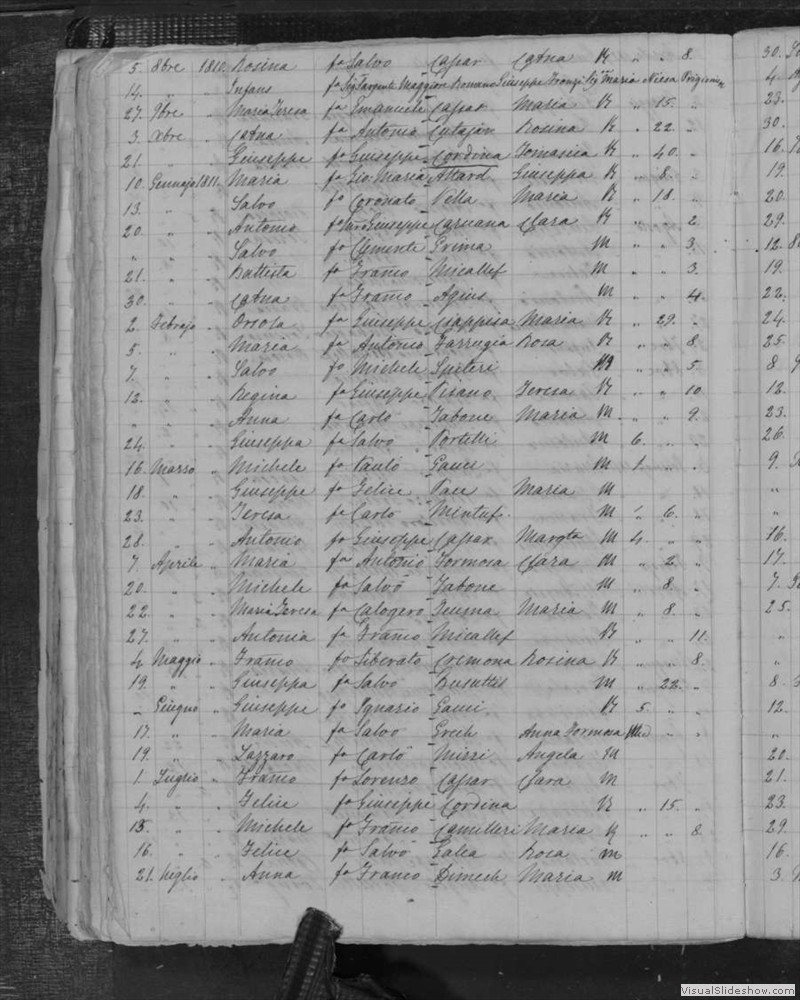 5. 8bre 1810. Rosina fa Salvo Caspar Catna R " " 8. 30.
14. " " Infans fo Maggiore Romano Giuseppe Maria Nicca Prigionier 4.
27. 9bre " Maria Teresa fa Emanuele Caspar Maria R " 15. " 23.
3. Xbre " Catna fa Antonio Cutajar Rosina R " 22. " 30.
21. " " Giuseppe fo Giuseppe Cordina Tomasica R " 40. " 16.
10. Gennajo 1811. Maria fa Gio: Maria Attard Giuseppa R " 8. " 19.
13. " " Salvo fo Coronato Vella Maria R " 18. " 20.
20. " " Antonio fo Giuseppe Caruana Clara R " " 2. 29.
" " " Salvo fo Clemente Grima M " " 3. 12.
21. " " Battista fo Franco Micallef M " " 3. 19.
30. " " Catna fa Franco Agius M " " 4. 22.
2. Febrajo " Orsola fa Giuseppe Maria R " 29. " 24.
5. " " Maria fa Antonio Farrugia Rosa R " " 8. 25.
7. " " Salvo fo Michele Spiteri " " 5. 8
12. " " Regina fa Giuseppe Pisano Teresa R " " 10 12.
" " " Anna fa Carlo Tabone Maria M " " 9. 23.
24. " " Giuseppa fa Salvo Portelli M 6. " " 26.
16. Marzo " Michele fo Paulo Gauci M 1. " " 9.
18. " " Giuseppe fo Felice Pace Maria M "
23. " " Teresa fa Carlo Mintuf. M " 6. " "
28. " " Antonio fo Giuseppe Caspar Margta M 4. " " 16.
7. Aprile " Maria fa Antonio Formosa Clara M " 2. " 17.
20. " " Michele fo Salvo Tabone M " 8. " 7.
22. " " Maria Teresa fa Calogero Maria M " 8. " 25.
27. " " Antonia fa Franco Micallef R " " 11. "
4. Maggio " Franco fo Liberato Cremona Rosina R " " 8. "
19. " " Giuseppa fa Salvo Busuttil M " 22. " 8.
" Giugno " Giuseppe fo Ignazio Gauci R 5. " " 12.
17. " " Maria fa Salvo Grech Anna Formosa " " "
19. " " Lazzaro fo Carlo Mizzi Angela M 20.
1. Luglio " Franco fo Lorenzo Caspar Clara M 21.
4. " " Felice fo Giuseppe Cordina R " 15. " 23.
13. " " Michele fo Franco Camilleri Maria R " " 8. 29.
16. " " Felice fo Salvo Galea Rosa M 16.
21. luglio " Anna fa Franco Dimech Maria M 3.
VisualSlideshow.com